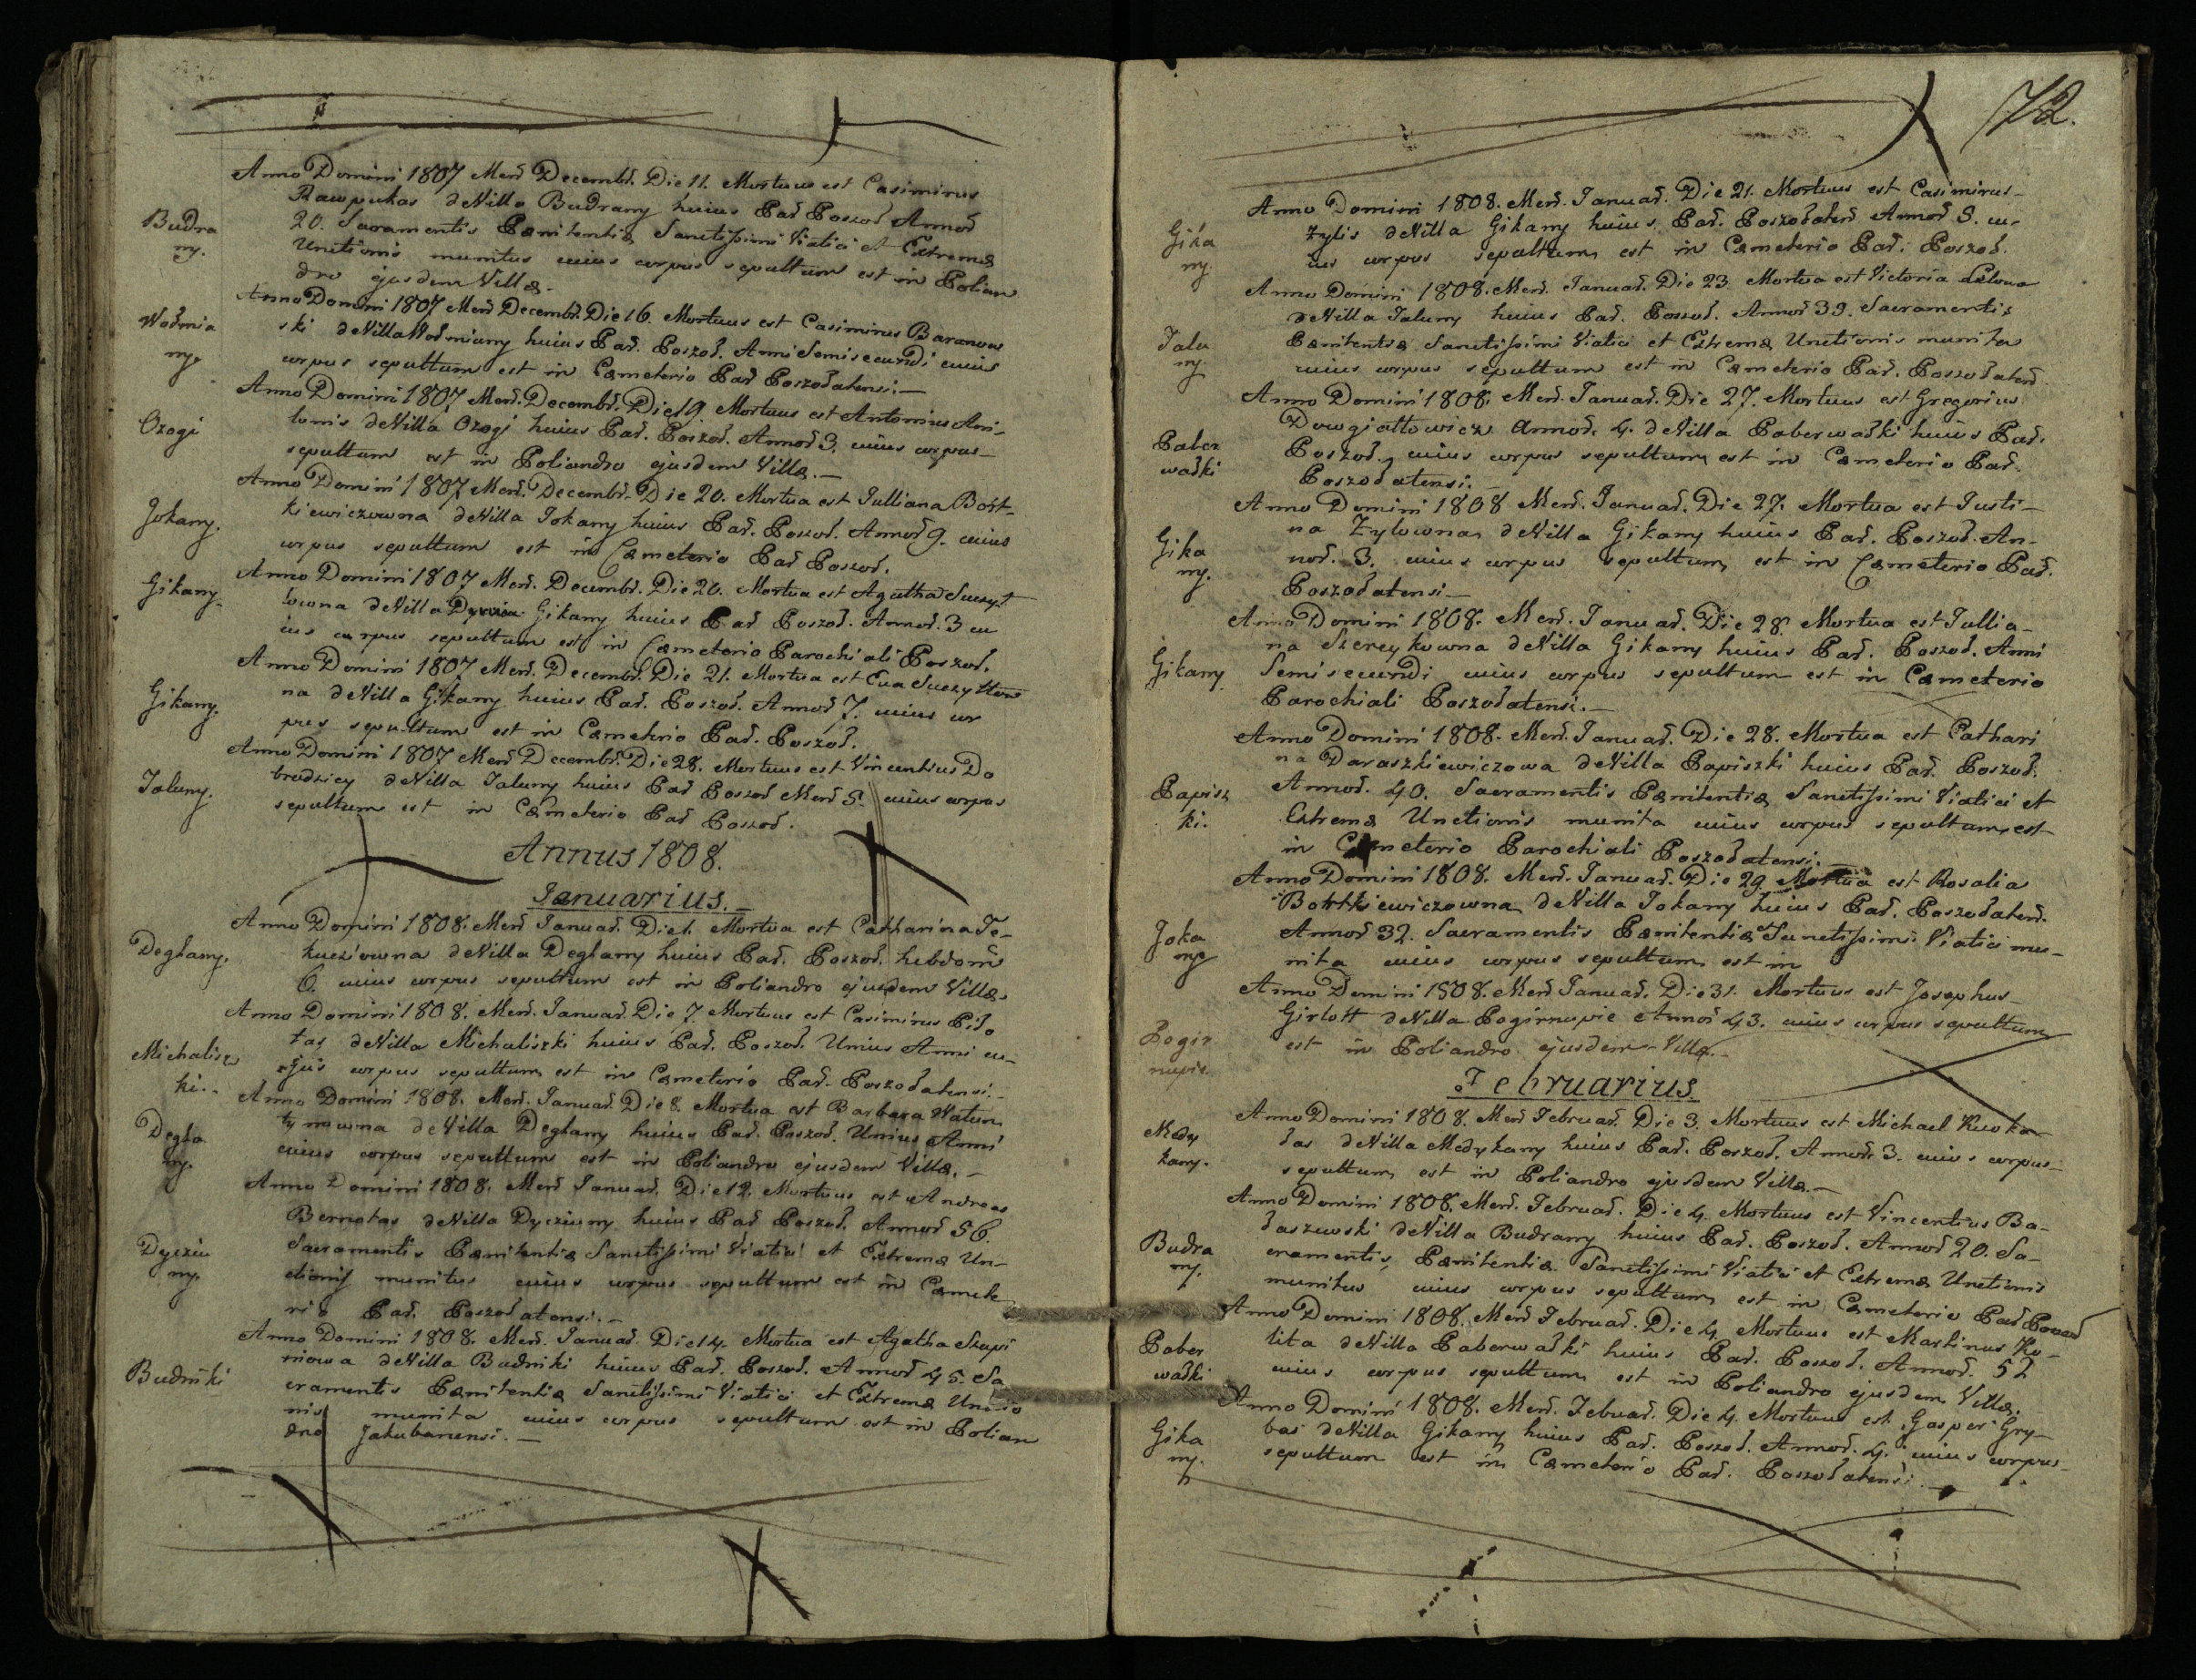 Anno Domini 1807 Mens Decembr. Die 11. Mortuus est Casimirus
Rawpukas de Villa Budrany huius Par Poszol Annor
Budra
ny.
20. Sacramentis Pœnitentiæ Sanctissimi Viatici et Extremæ
Unctionis munitus cuius corpus sepultum est in Polian
dro ejusdem Villæ.
Anno Domini 1807 Mens Decembr. Die 16. Mortuus est Casimirus Baranows
ny.
ski de Villa huius Par. Poszol. Anni Semisecundi cuius
corpus sepultum est in Cœmeterio Par Poszolatensi.—
Anno Domini 1807 Mens. Decembr. Die 19. Mortuus est Antonius Ani-
Ozogi
lonis de Villa Ozogi huius Par. Poszol. Annor 3. cuius corpus
sepultum est in Poliandro ejusdem Villæ.—
Anno Domini 1807 Mens. Decembr. Die 20. Mortua est Julliana Bort-
Jokany.
kiewiczowna de Villa Jokany huius Par. Poszol. Annor 9. cuius
corpus sepultum est in Cœmeterio Par Poszol.
Anno Domini 1807 Mens. Decembr. Die 20. Mortua est Agatha Suszyt
Gikany.
towna de Villa Gikany huius Par Poszol. Annor. 3 cu
ius corpus sepultum est in Cœmeterio Parochiali Poszol.
Anno Domini 1807 Mens. Decembr. Die 21. Mortua est Eva Suszyttow
Gikany.
na de Villa Gikany huius Par. Poszol. Annor 7. cuius cor
pus sepultum est in Cœmeterio Par. Poszol.
Anno Domini 1807 Mens Decembr. Die 28. Mortuus est Vincentius Do
Jaluny.
brodziey de Villa Jaluny huius Par Poszol Mens 5. cuius corpus
sepultum est in Cœmeterio Par Poszol.
Annus 1808.
Januarius.—
Anno Domini 1808. Mens Januar. Die 1. Mortua est Catharina Te-
Deglany.
kucziowna de Villa Deglany huius Par. Poszol. hebdom
6. cuius corpus sepultum est in Poliandro ejusdem Villæ
Anno Domini 1808. Mens. Januar. Die 7. Mortuus est Casimirus Piło
Michalisz
ki.-
tas de Villa Michaliszki huius Par. Poszol. Unius Anni cu-
jus corpus sepultum est in Cœmeterio Par. Poszolatensi.-
Anno Domini 1808. Mens. Januar. Die 8. Mortua est Barbara Watun
Degla
ny.
tynowna de Villa Deglany huius Par. Poszol. Unius Anni
cuius corpus sepultum est in Poliandro ejusdem Villæ.—
Anno Domini 1808. Mens Januar. Die 12. Mortuus est Andreas
Bernotas de Villa Dycziuny huius Par Poszol. Annor 56.
Dycziu
ny.
Sacramentis Pœnitentiæ Sanctissimi Viatici et Extremæ Un-
ctionis munitus cuius corpus sepultum est in Cœmete
rio Par. Poszolatensi.—
Anno Domini 1808. Mens. Januar. Die 14. Mortua est Agatha Szupi
Budniki
niowa de Villa Budniki huius Par. Poszol. Annor 45. Sa
cramentis Pœnitentiæ Sanctissimi Viatici et Extremæ Unctio
nis munita cuius corpus sepultum est in Polian
dro Jakubanensi.—
72.
Anno Domini 1808. Mens. Januar. Die 21. Mortuus est Casimirus
Gika
ny.
Zylis de Villa Gikany huius Par. Poszolatens Annor 9. cu-
ius corpus sepultum est in Cœmeterio Par. Poszol.
Anno Domini 1808. Mens. Januar. Die 23 Mortua est Victoria
Jalu
ny
de Villa Jaluny huius Par. Poszol. Annor 39. Sacramentis
Pœnitentiæ Sanctissimi Viatici et Extremæ Unctionis munita
cuius corpus sepultum est in Cœmeterio Par. Poszolatens
Anno Domini 1808. Mens. Januar. Die 27. Mortuus est Gregorius
Paber
walki
Dowgiałłowicz Annor. 4. de Villa Paberwalki huius Par.
Poszol. cuius corpus sepultum est in Cœmeterio Par.
Poszolatensi.—
Anno Domini 1808 Mens. Januar. Die 27. Mortua est Justi-
Gika
ny.
na Zylowna de Villa Gikany huius Par. Poszol. An-
nor. 3. cuius corpus sepultum est in Cœmeterio Par.
Poszolatensi—
Anno Domini 1808. Mens. Januar. Die 28. Mortua est Jullia-
Gikany
na Szereykowna de Villa Gikany huius Par. Poszol. Anni
Semisecundi cuius corpus sepultum est in Cœmeterio
Parochiali Poszolatensi.—
Anno Domini 1808. Mens. Januar. Die 28. Mortua est Cathari
na Daraszkiewiczowa de Villa Papiszki huius Par. Poszol.
Papisz
ki.
Annor. 40. Sacramentis Pœnitentiæ Sanctissimi Viatici et
Extremæ Unctionis munita cuius corpus sepultum est
in Cœmeterio Parochiali Poszolatensi.—
Anno Domini 1808. Mens. Januar. Die 29 Mortua est Rosalia
kiewiczowna de Villa Jokany huius Par. Poszolatens.
Joka
ny
Annor 32. Sacramentis Pœnitentiæ Sanctissimi Viatici mu-
nita cuius corpus sepultum est in
Anno Domini 1808. Mens Januar. Die 31. Mortuus est Josephus
Pogir
nupie.
Girlott de Villa Pogirnupie Annor 43. cuius corpus sepultum
est in Poliandro ejusdem Villæ.—
Februarius
Anno Domini 1808. Mens Februar. Die 3. Mortuus est Michael Kuoka
Medy
kany.
las de Villa Medykany huius Par. Poszol. Annor. 3. cuius corpus
sepultum est in Poliandro ejusdem Villæ.—
Anno Domini 1808. Mens. Februar. Die 4. Mortuus est Vincentius Ba-
Budra
ny.
laszewski de Villa Budrany huius Par. Poszol. Annor 20. Sa-
cramentis Pœnitentiæ Sanctissimi Viatici et Extremæ Unctionis
munitus cuius corpus sepultum est in Cœmeterio Par Poszol
Anno Domini 1808. Mens Februar. Die 4. Mortuus est Martinus Ko-
Paber
walki
lita de Villa Paberwalki huius Par. Poszol. Annor. 52
cuius corpus sepultum est in Poliandro ejusdem Villæ.
Anno Domini 1808. Mens. Febuar. Die 4. Mortuus est Gasper Gry-
Gika
ny.
bas de Villa Gikany huius Par. Poszol. Annor. 4. cuius corpus
sepultum est in Cœmeterio Par. Poszolatensi.—